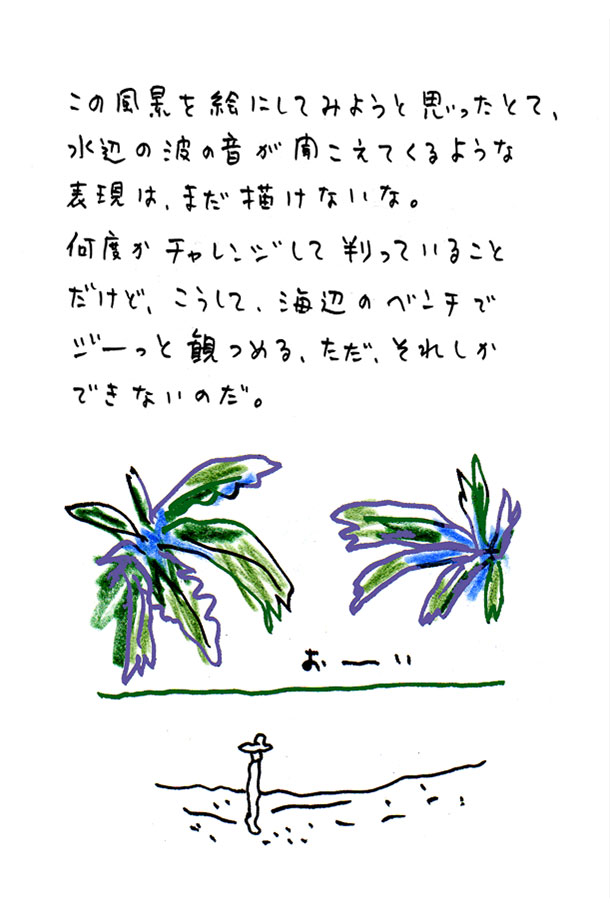 この風景を絵にしてみようと思ったとて、
水辺の波の音が聞こえてくるような
表現は、まだ描けないな。
何度かチャレンジして判っていること
だけど、こうして、海辺のベンチで
ジーっと観つめる、ただ、それしか
できないのだ。
おーい